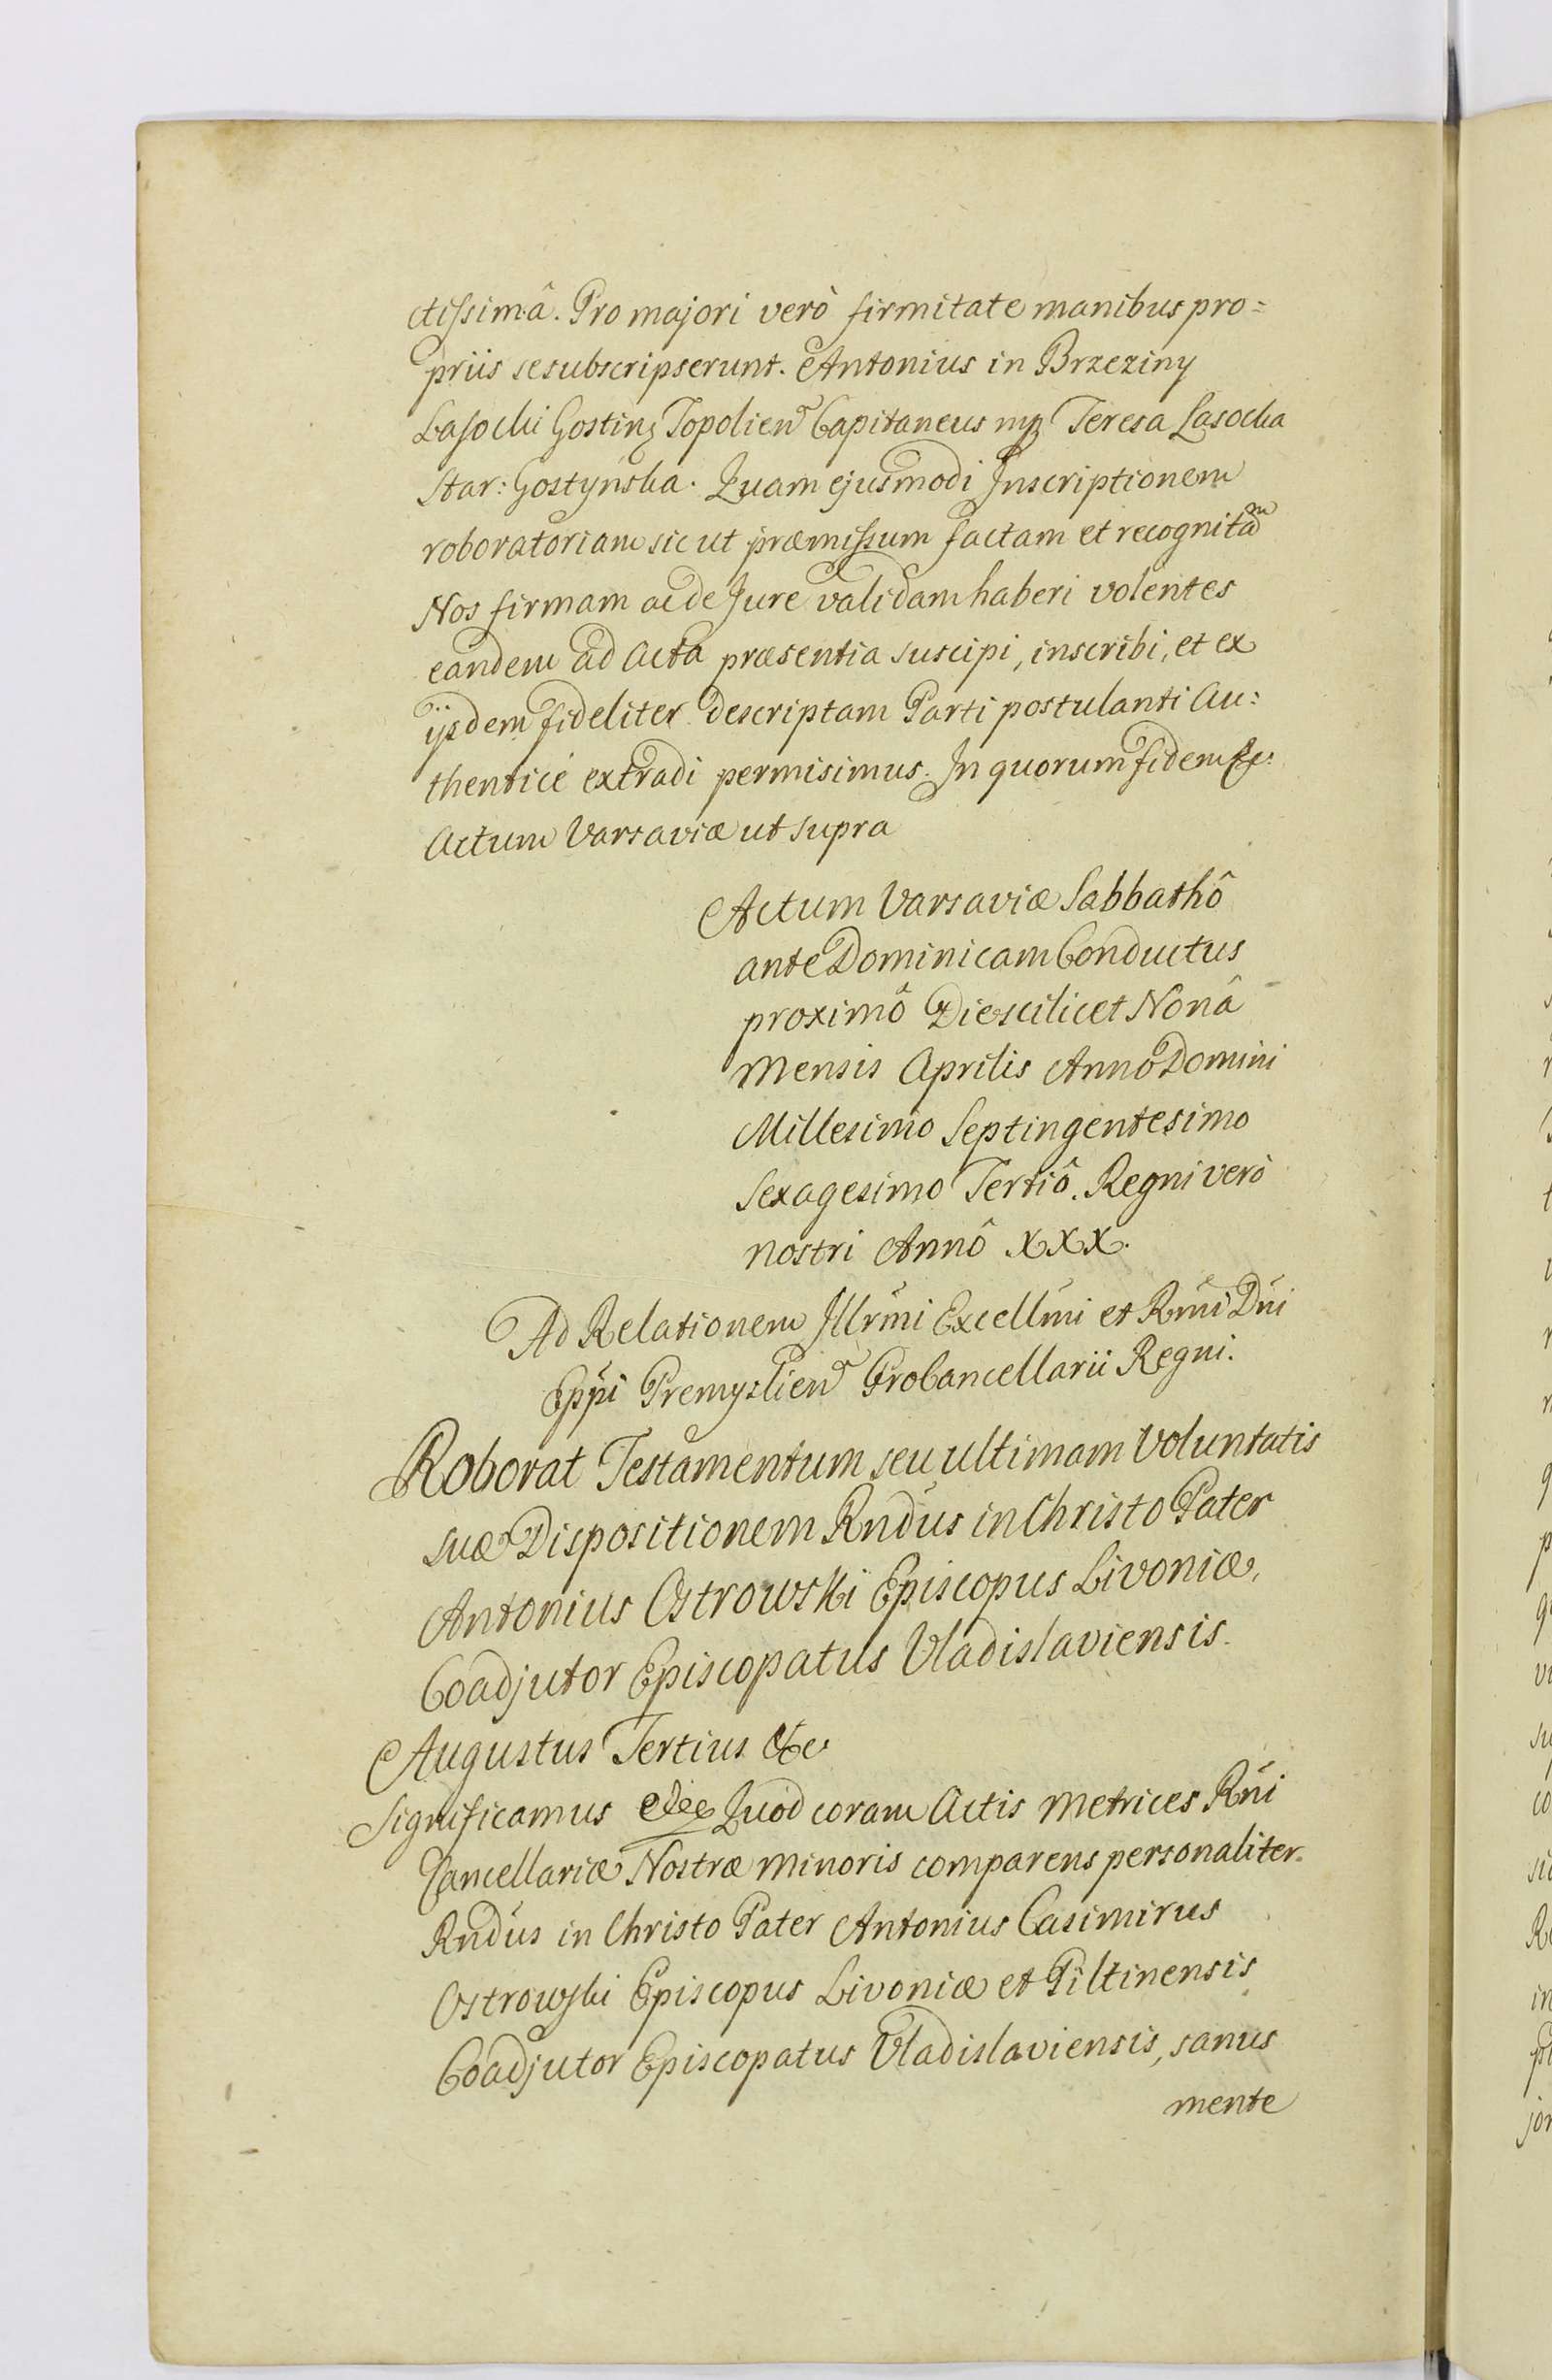 ctissimâ. Pro majori verò firmitate manibus pro=
priis se subscripserunt. Antonius in Brzeziny
Lasocki Gostinẽ Topolien Capitaneus mp Teresa Lasocka
Star: Gostyńska. Quam ejusmodi Inscriptionem
roboratoriam sic ut præmissum factam et recognitam
Nos firmam ac de Jure validam haberi volentes
eandem ad Acta præsentia suscipi, inscribi, et ex
ijsdem fideliter descriptam Parti postulanti Au:
thenticè extradi permisimus. In quorum fidem &c.
Actum Varsaviæ ut supra
Actum Varsaviæ Sabbathô
ante Dominicam Conductus
proximô Die scilicet Nonâ
Mensis Aprilis Annô Domini
Millesimo Septingentesimo
Sexagesimo Tertiô. Regni verò
nostri Annô XXX.
Ad Relationem Illrm̃i Excellm̃i et Rm̃i Dñi
Epp̃i Premyslien ProCancellarii Regni.
Roborat Testamentum seu ultimam Voluntatis
suæ Dispositionem Rndus in Christo Pater
Antonius Ostrowski Episcopus Livoniæ,
Coadjutor Episcopatus Vladislaviensis.
Augustus Tertius &c
Significamus Quod coram Actis Metrices Rñi
Cancellariæ Nostræ Minoris comparens personaliter
Rndus in Christo Pater Antonius Casimirus
Ostrowski Episcopus Livoniæ et Piltinensis
Coadjutor Episcopatus Vladislaviensis, sanus
mente